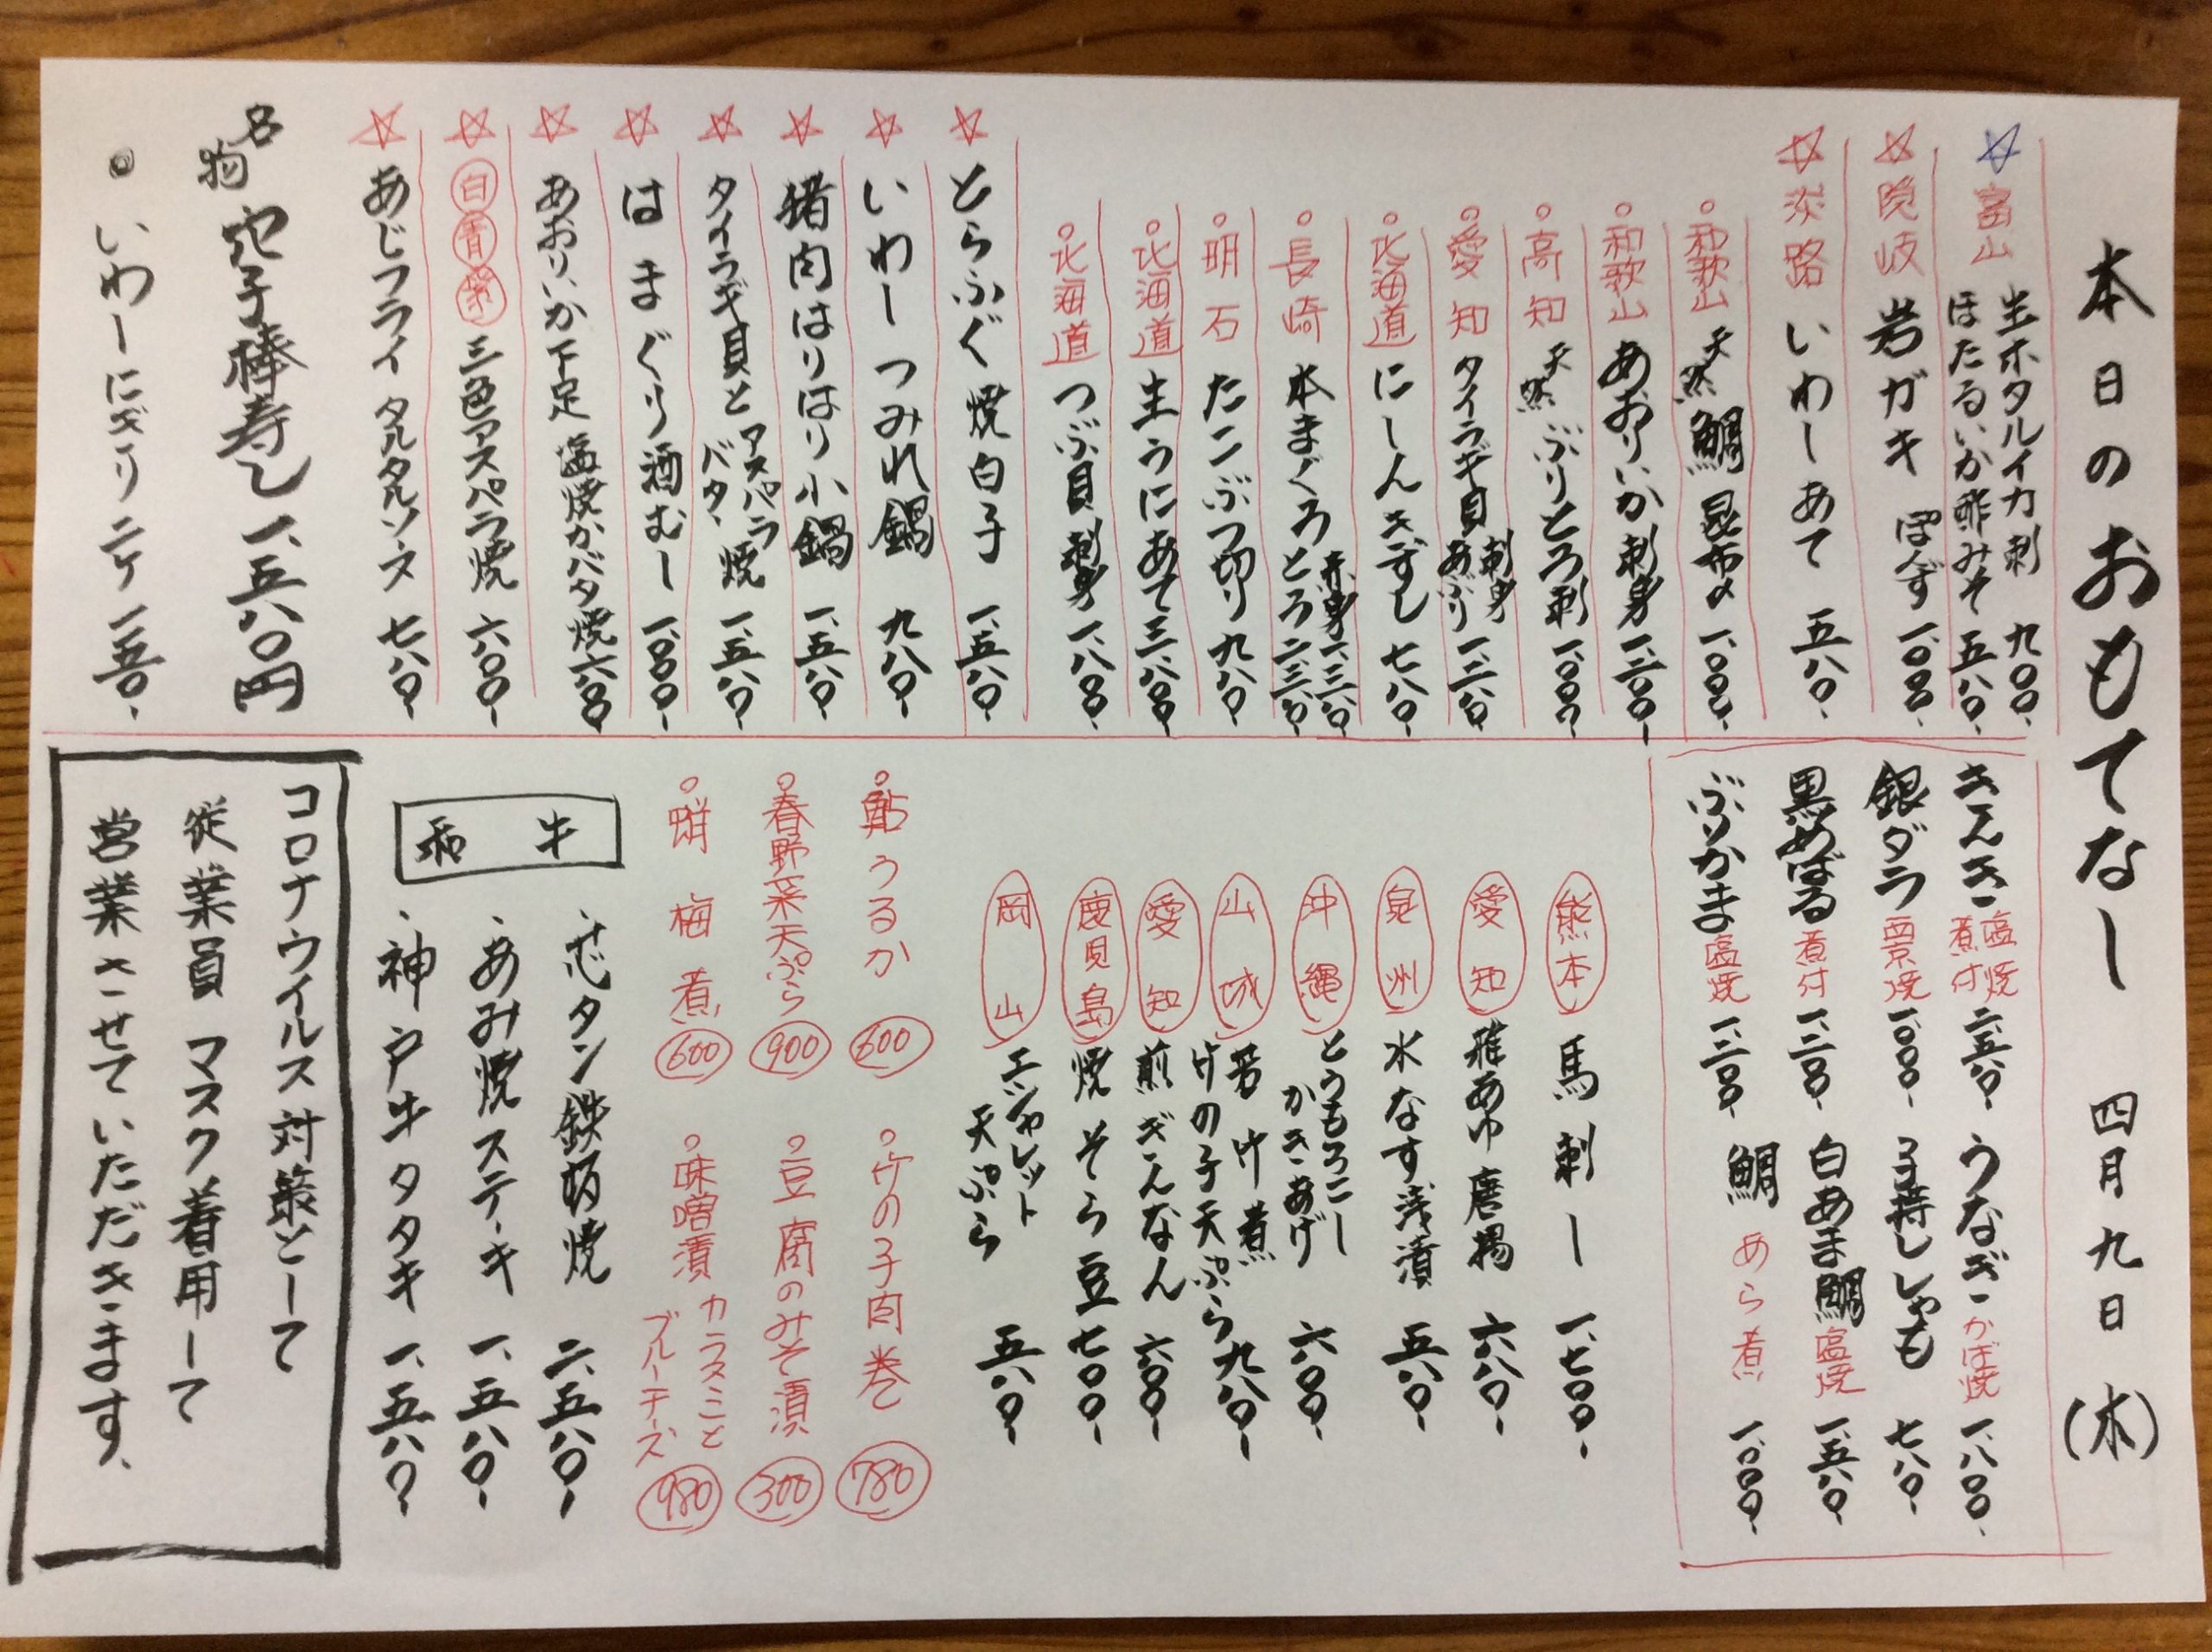 本日のおもてなし 四月九日(木)
☆富山 生ホタルイカ刺 九〇〇、
ほたるいか酢みそ 五八〇、
☆隠岐 岩ガキ ぽんず 一、〇〇〇、
☆淡路 いわしあて 五八〇、
○和歌山 天然鯛昆布〆 一、〇〇〇、
○和歌山 あおりいか刺身 一、二〇〇、
○高知 天然ぶりとろ刺 一、〇〇〇、
○愛知 タイラギ貝 刺身 あぶり 一、三八〇、
○北海道 にしんきずし 七八〇、
○長崎 本まぐろ 赤身 一、三八〇、
とろ 二、三八〇、
○明石 たこぶつ切り 九八〇、
○北海道 生うにあて 三、八〇〇、
○北海道 つぶ貝刺身 一、八〇〇、
☆とらふぐ焼白子 一、五八〇、
☆いわしつみれ鍋 九八〇、
☆猪肉はりはり小鍋 一、五八〇、
☆タイラギ貝とアスパラバター焼 一、五八〇、
☆はまぐり酒むし 一、〇〇〇、
☆あおりいか下足 塩焼かバタ焼 六八〇
☆白青紫 三色アスパラ焼 六〇〇、
☆あじフライ タルタルソース 七八〇、
名物 穴子棒寿し 一、五八〇円
○いわしにぎり 二ケ 一五〇、
きんき 塩焼 煮付 二、五八〇、
銀ダラ 西京焼 一、〇〇〇、
黒めばる 煮付 一、三八〇、
ぶりかま 塩焼 一、三八〇、
うなぎ かば焼 一、八〇〇、
子持ししゃも 七八〇、
白あま鯛 塩焼 一、五八〇、
鯛 あら煮 一、〇〇〇、
熊本 馬刺し 一、七〇〇、
愛知 稚あゆ唐揚 六八〇、
泉州 水なす浅漬 五八〇、
沖縄 とうもろこしかきあげ 六〇〇、
山城 若竹煮
竹の子天ぷら 九八〇、
愛知 煎ぎんなん 六〇〇、
鹿児島 焼そら豆 七〇〇、
岡山 エシャレット天ぷら 五八〇、
○鮎うるか 600
○春野菜天ぷら 900
○蛸梅煮 600
○竹の子肉巻 780
○豆腐のみそ漬 300
○味噌漬 カラスミとブルーチーズ 980
和牛
、芯タン鉄板焼 二、五八〇、
、あみ焼ステーキ 一、五八〇、
、神戸牛タタキ 一、五八〇、
コロナウイルス対策として
従業員マスク着用して
営業させていただきます、